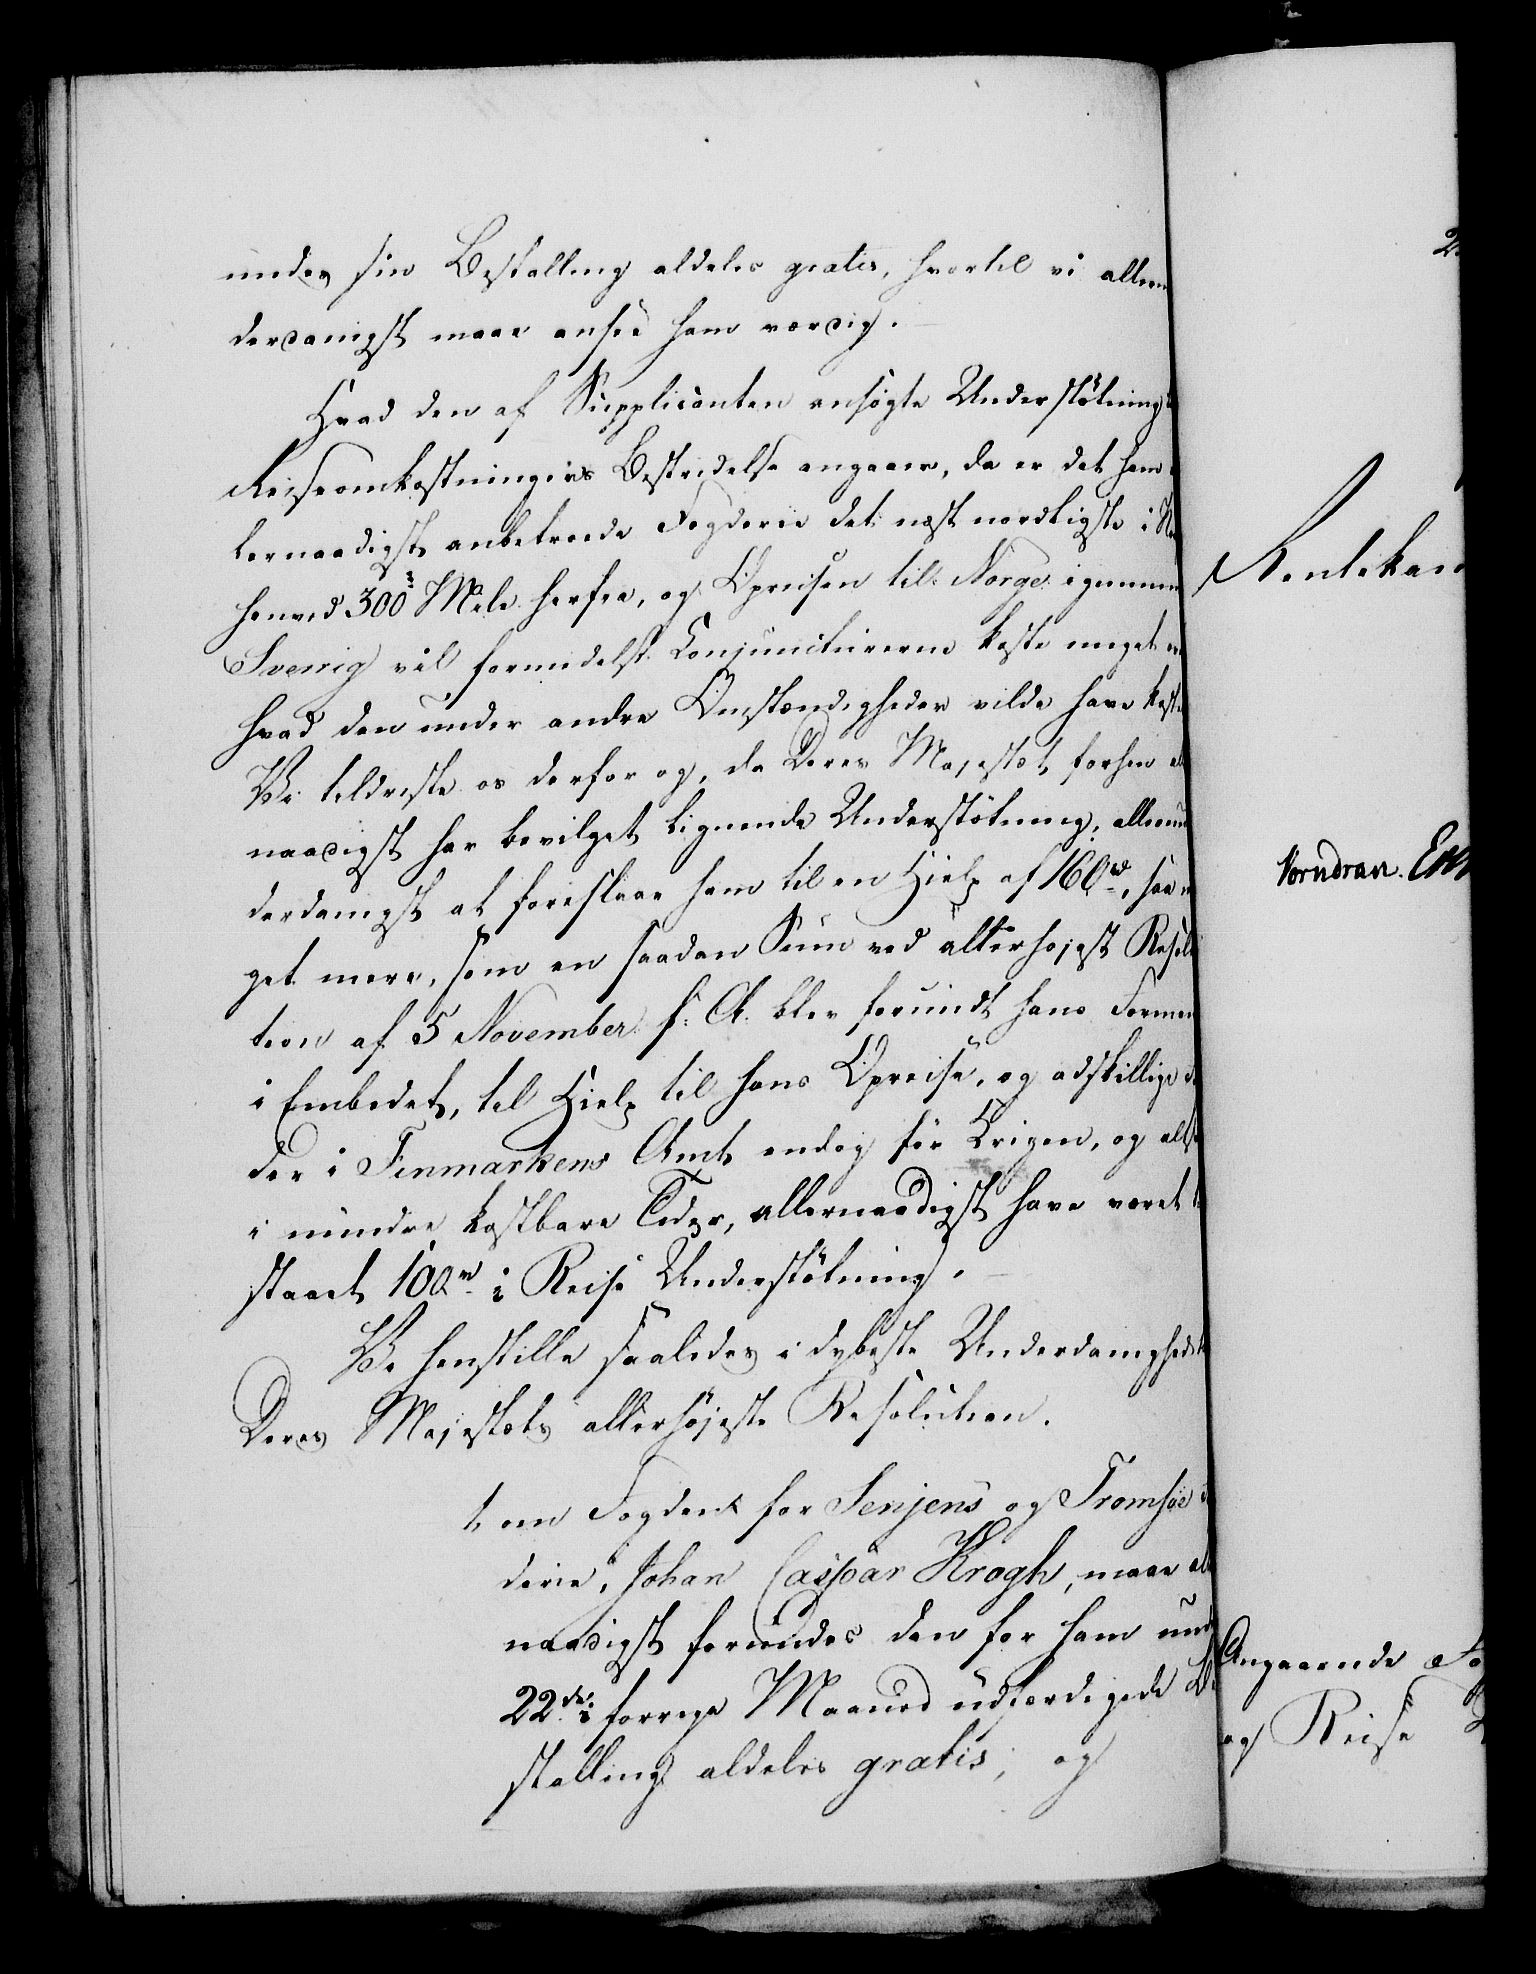 undes sin Bestalling aldeles gratis, hvortil vi allerun
derdanigst maae ansee ham værdig.
Hvad den af Supplicanten ansøgte Understøtning
Reiseomkostningers Bestridelse angaaer, da er det ham
lernaadigst anbetroede Fogderie det næst nordligste i
henved 300 Mile herfra, og Opreisen til Norge igiennem
Sverrig vil formedelst Conjuncturerne koste meget
hvad den under andre Omstændigheder vilde have kostet
Vi tildriste os derfor og, da Deres Majestæt forhen al
naadigst har bevilget lignende Understøtning, allerun
derdanigst at foreslaae ham til en Hielp af 160 rd, saa
get mere, som en saadan Sum ved allerhøjest Resolu
tion af 5 November f: A: blev forundt hans Formand
i Embedet, til Hielp til hans Opreise, og adskillige
der i Finmarkens Amt endog før Krigen, og alt
i mindre kostbare Tider, allernaadigst have været
staaet 100 rd i Reise Understøtning.
Vi henstille saaledes i dybeste Underdanighed
Deres Majestæts allerhøjeste Resolution.
t om Fogden for Senjens og Tromsøe
derie, Johan Caspar Krogh, maae al
naadigst forundes den for ham und
22de i forrige Maaned udfærdigede Be
stalling aldeles gratis, og
Rentekam
Vorndran.
Angaaende
og Reise